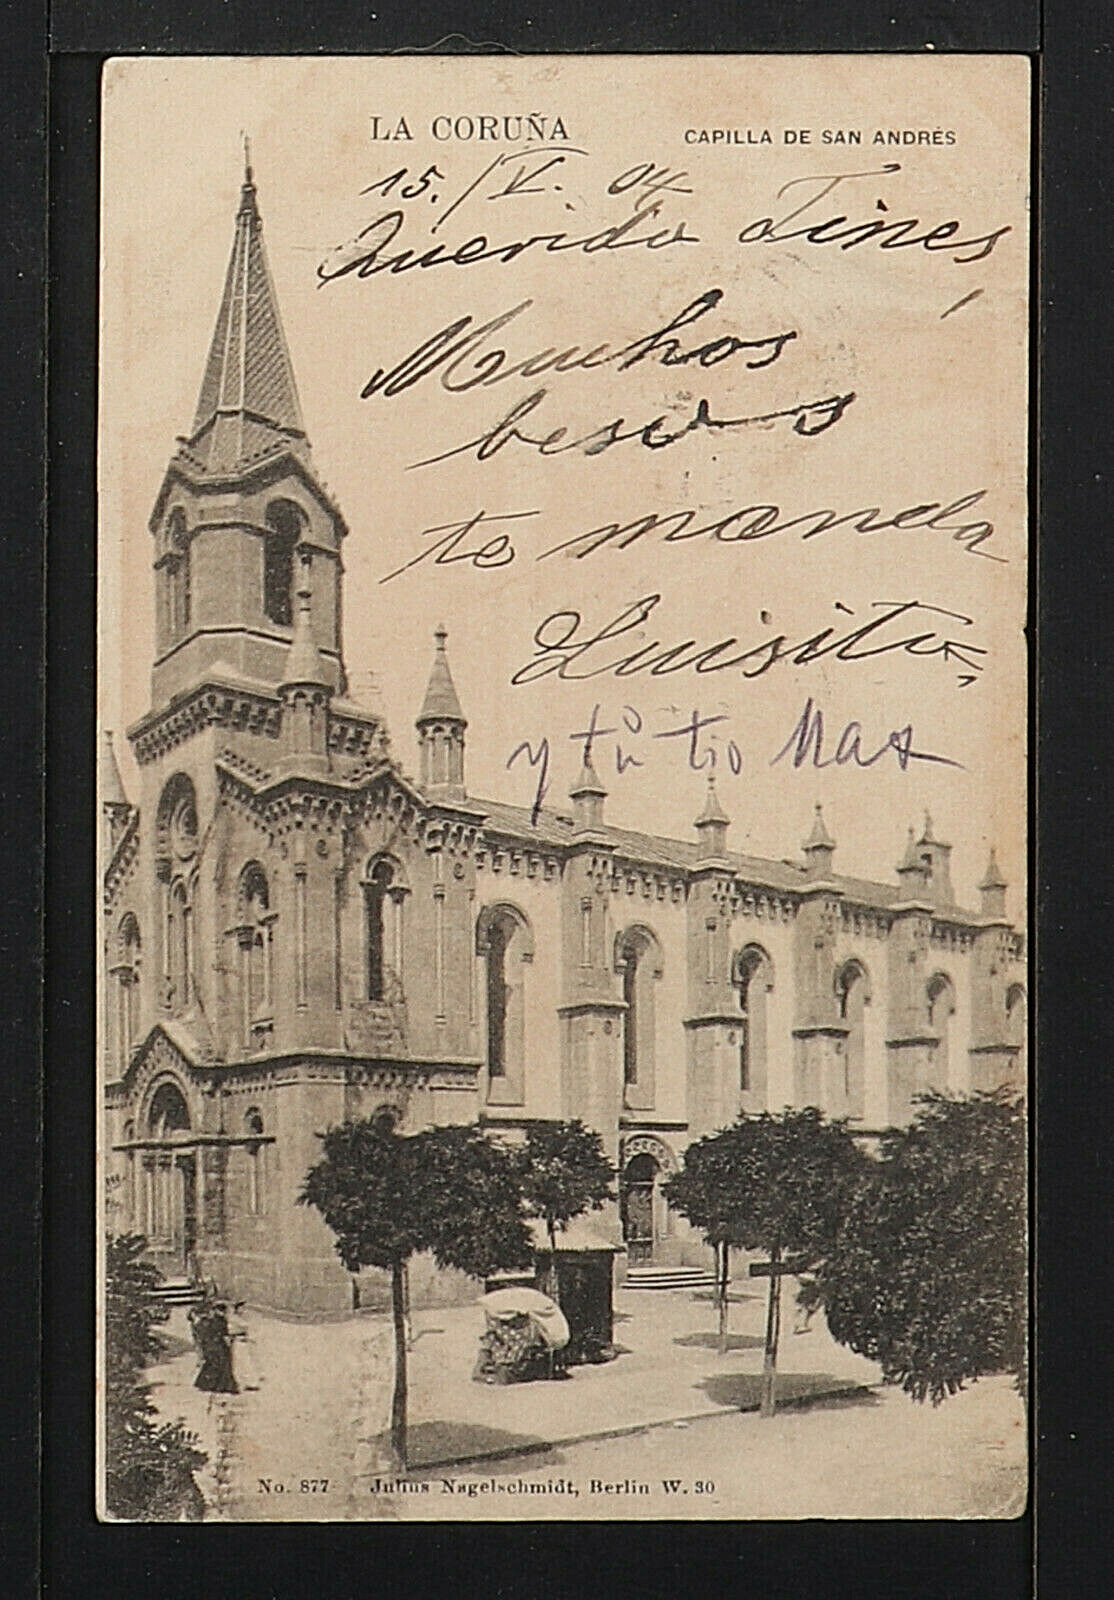 LA CORUÑA
CAPILLA DE SAN ANDRÉS
15. / V. 04
Querido Tines,
Muchos
besos
te manda
Luisito
y tú tio Max
No. 877 Julius Nagelschmidt, Berlin W. 30